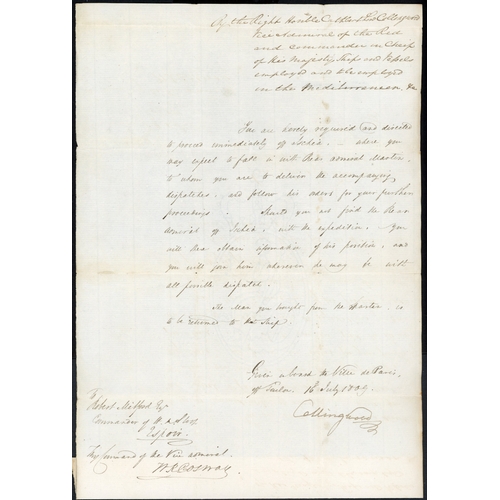 By the Right Honble Cuthbert Lord Collingwood
Vice Admiral of the Red
and Commander in Chief
of His Majestys Ships and Vessels
employed and to be employed
in the Mediterranean &c
You are hereby required and directed
to proceed immediately off Ischia, where you
may expect to fall in with Rear Admiral Martin,
to whom you are to deliver the accompanying
dispatches, and follow his orders for your further
proceedings. Should you not find the Rear
Admiral off Ischia, with the expedition, you
will there obtain information of his position, and
you will join him wherever he may be with
all possible dispatch.
The Man you brought from the is
to be returned to that Ship.
Given on board the Ville de Paris,
off Toulon 16 July 1809.
Collingwood
To
Robert Mitford Esq
Commander of H. M. Sloop
Espoir
By Command of the Vice Admiral
W. R. Cosway